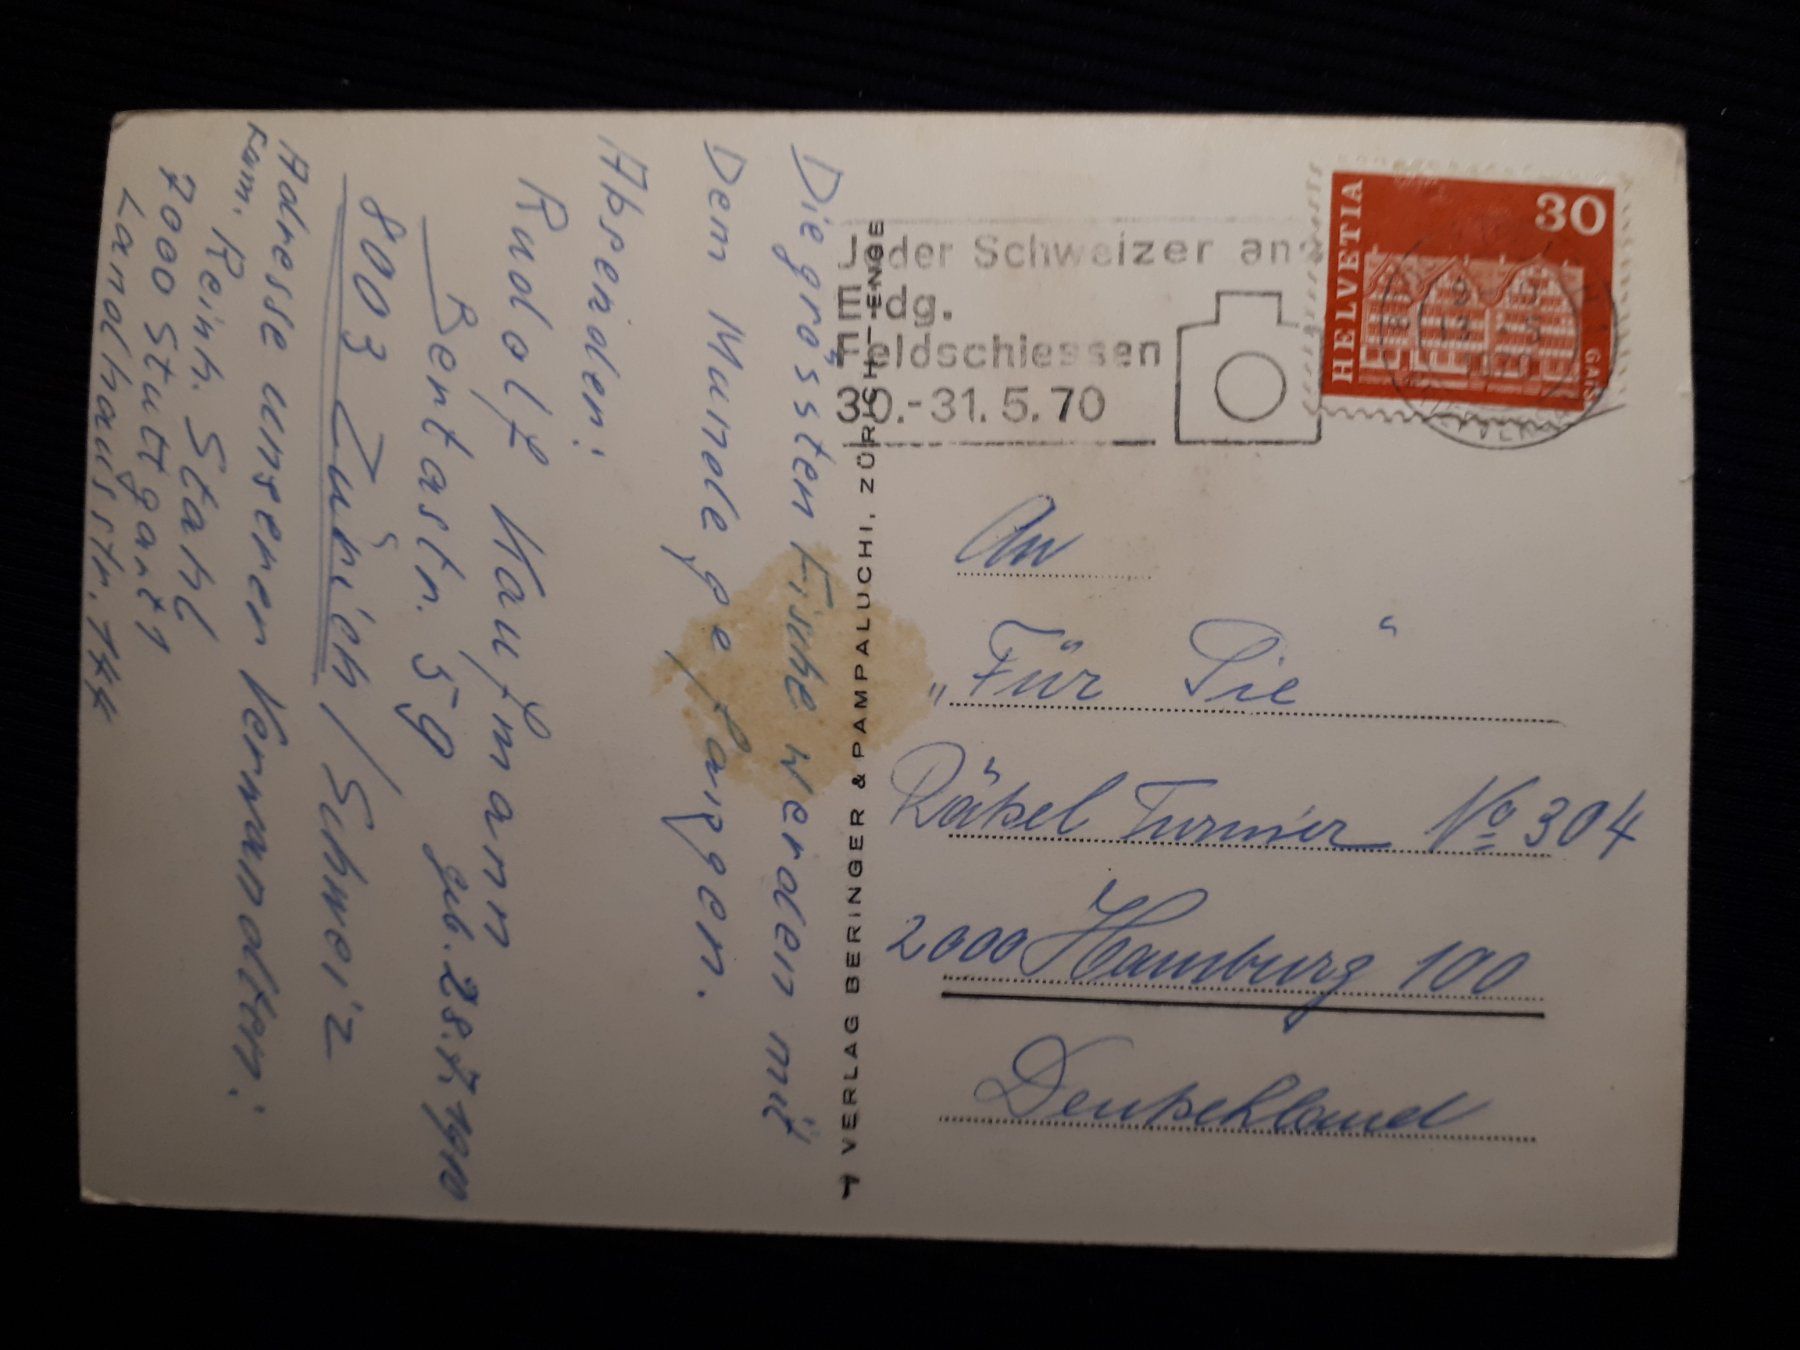 Die grössten Fische werden mit
Dem Munde gefangen.
Absender:
Rudolf Kaufmann
Bertastr. 59 geb. 28.7.1910
8003 Zürich / Schweiz
Adresse unserer Verwandten:
Fam. Reinh. Stahl
7000 Stuttgart 1
Landhausstr. 144
VERLAG BERINGER & PAMPALUCHI, ZÜRICH - ENGE
Jeder Schweizer ans
Eidg.
Feldschiessen
30.-31.5.70
HELVETIA
30
GAIS
An
„Für Sie“
Rätsel Turnier No 304
2000 Hamburg 100
Deutschland